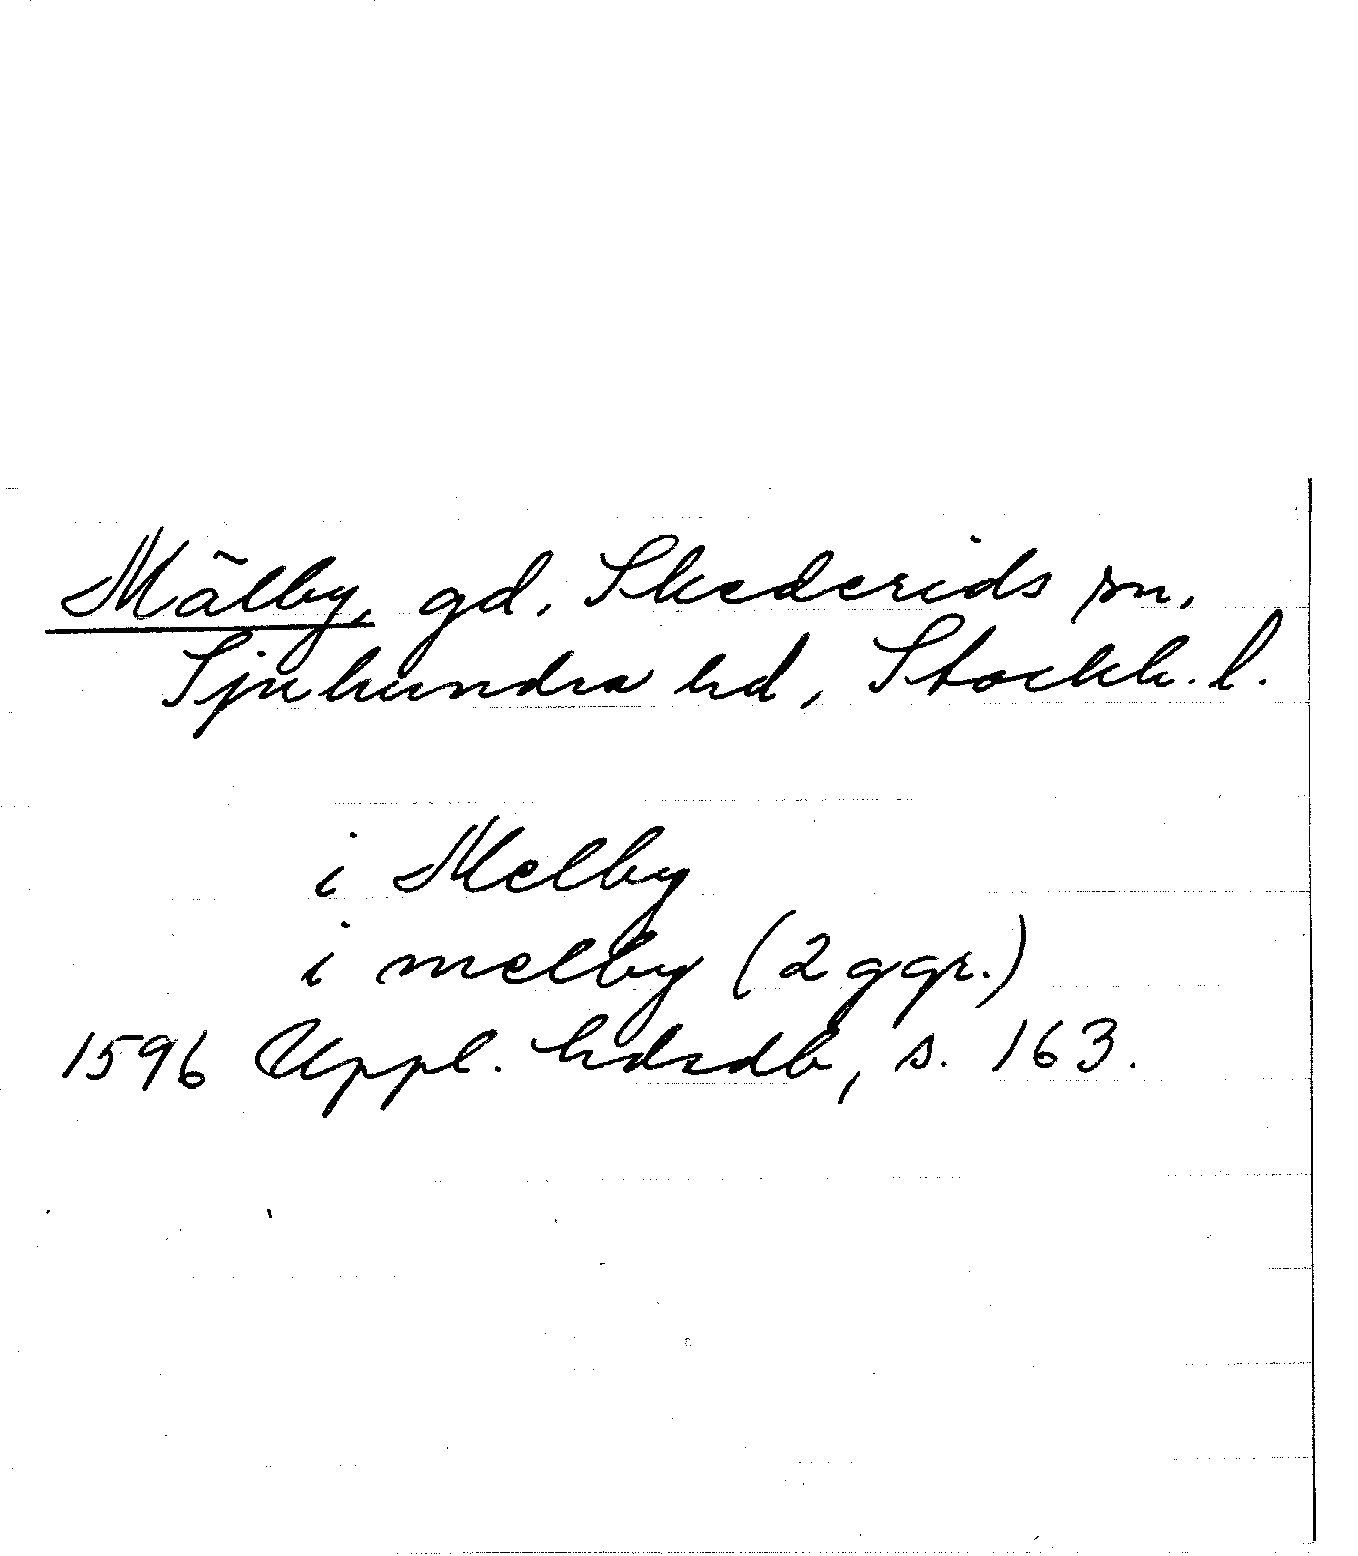 Mälby, gd. Skederids sn.
Sjuhundra hd, Stockh. l.
i Melby
i melby (2 ggr.)
1596 Uppl. hdrdb, s. 163.